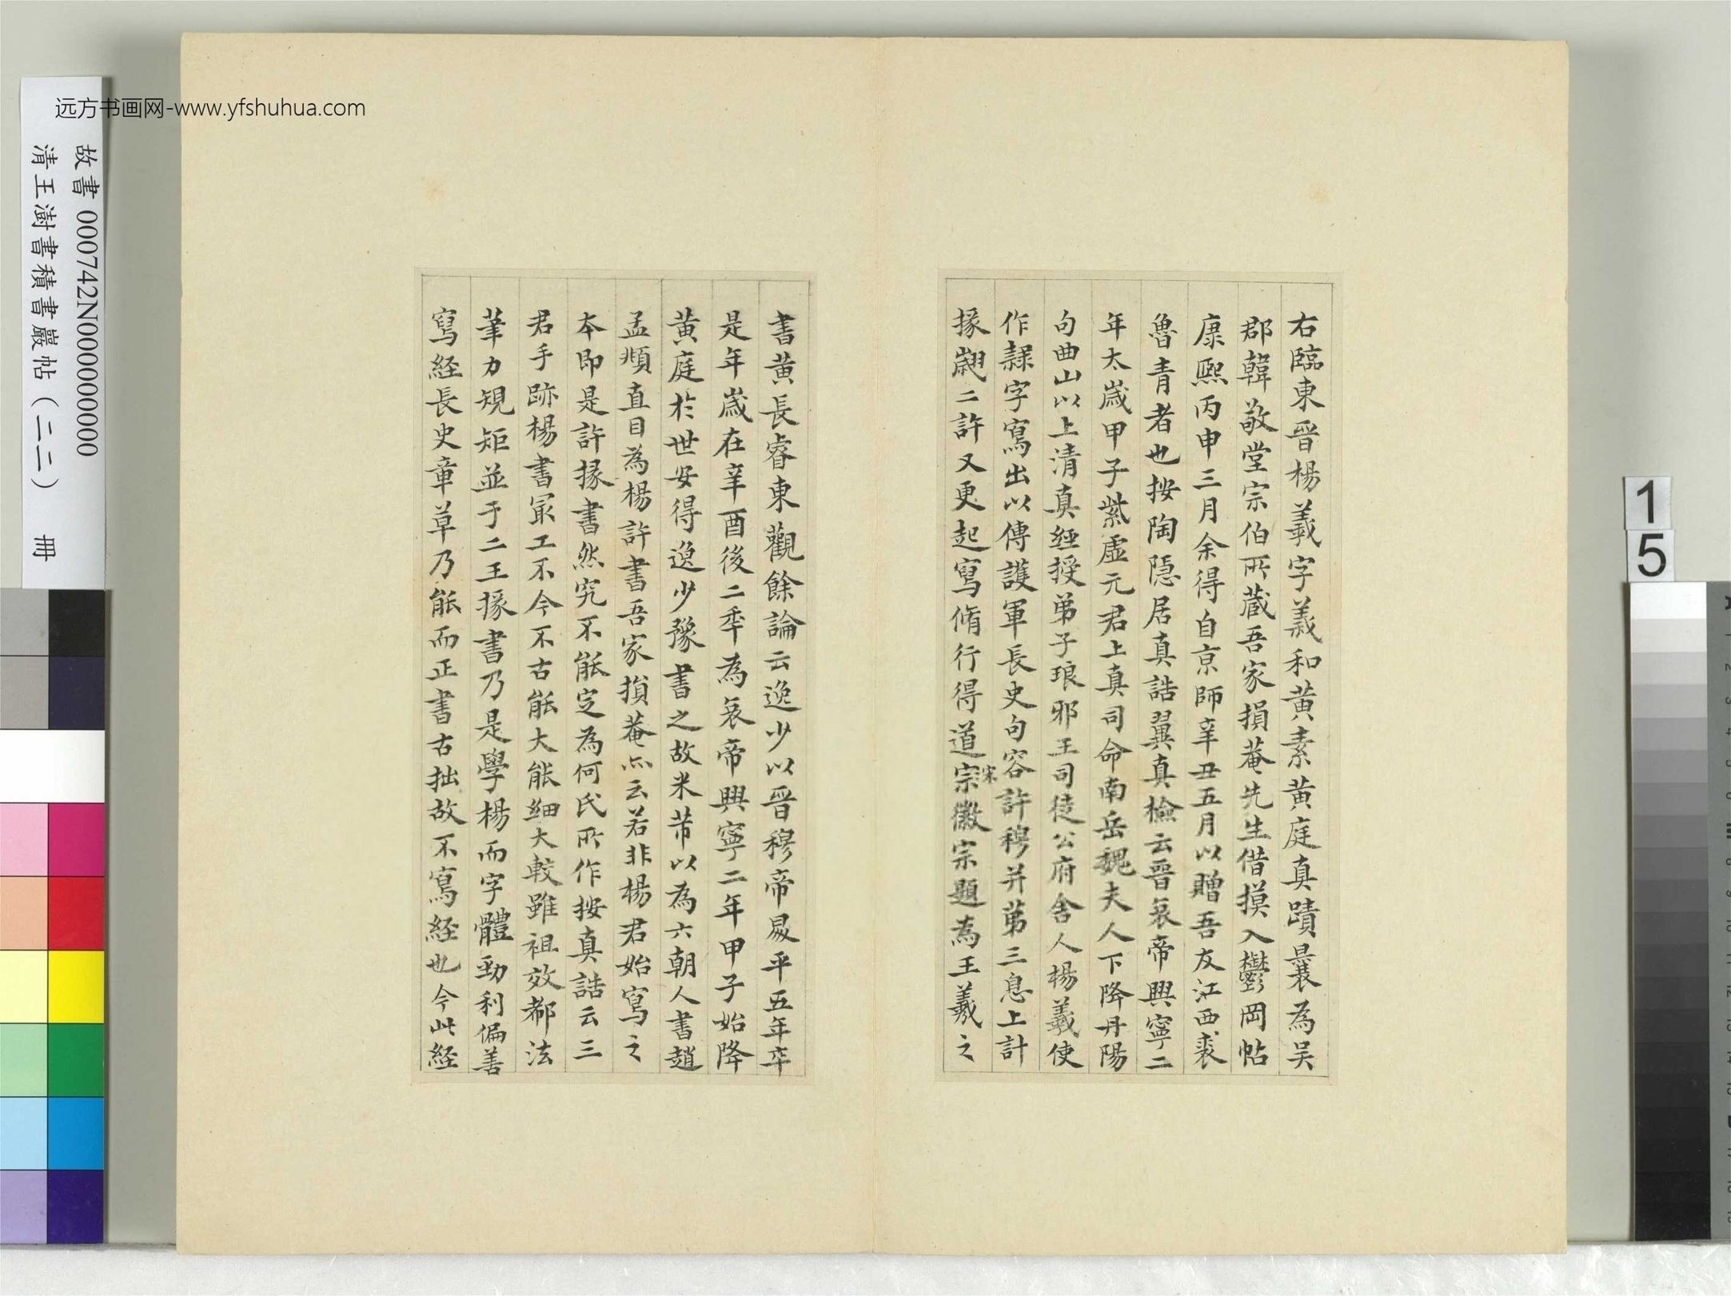 远方书画网-www.yfshuhua.com
故書 000742N000000000
清王澍書積書巖帖（二二） 冊
15
右臨東晉楊羲字義和黃素黃庭真蹟曩為吴
郡韓敬堂宗伯所藏吾家損菴先生借摸入鬱岡帖
康熙丙申三月余得自京師辛丑五月以贈吾友江西裘
魯青者也按陶隠居真誥翼真檢云晉哀帝興寧二
年太歲甲子紫虛元君上真司命南岳魏夫人下降丹陽
句曲山以上清真經授弟子琅邪王司徒公府舍人楊羲使
作隸字寫出以傳護軍長史句容許穆并弟三息上計
掾翽二許又更起寫脩行得道宋徽宗題為王羲之
書黃長睿東觀餘論云逸少以晉穆帝昇平五年卒
是年歲在辛酉後二年為哀帝興寧二年甲子始降
黃庭於世安得逸少豫書之故米芾以為六朝人書趙
孟頫直目為楊許書吾家損菴亦云若非楊君始寫之
本即是許掾書然究不能定為何氏所作按真誥云三
君手跡楊書最工不今不古能大能細大較雖祖效郗法
筆力規矩並于二王掾書乃是學楊而字體勁利偏善
寫經長史章草乃能而正書古拙故不寫經也今此經